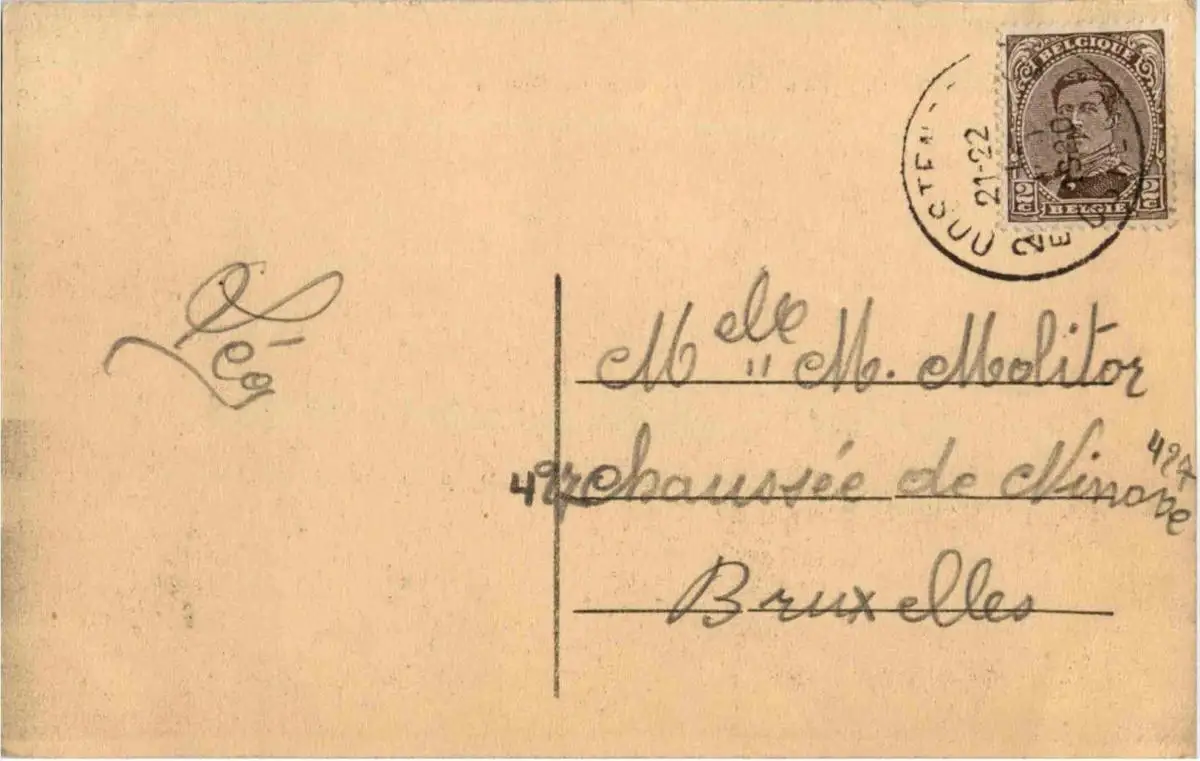 BELGIQUE
2c 2c
BELGIE
21-22
Léa
Mlle M. Molitor
497 chaussée de Ninove 497
Bruxelles